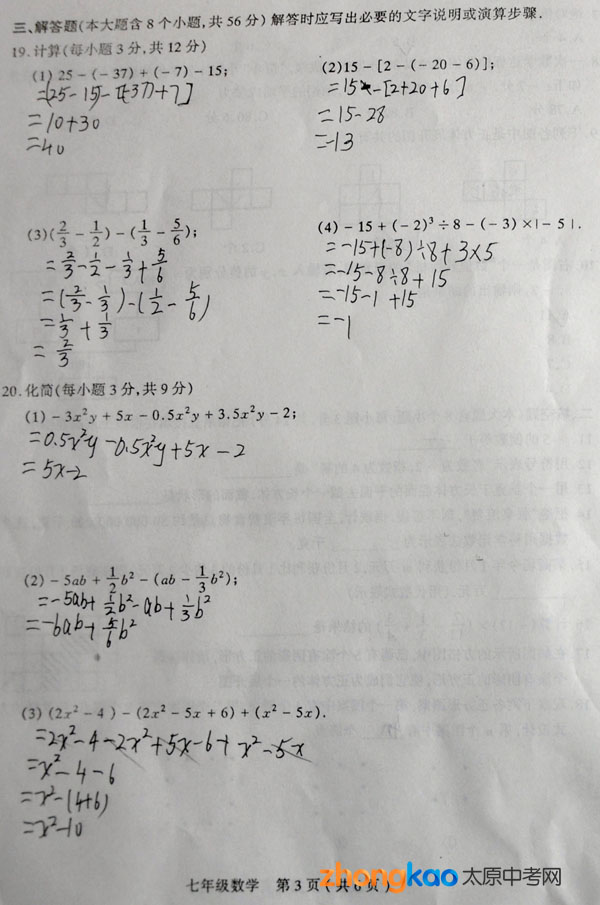 三、解答题(本大题含8个小题,共56分)解答时应写出必要的文字说明或演算步骤.
19.计算(每小题3分,共12分)
(1) 25-(-37)+(-7)-15;
=[25-15]-[(-37)+7]
=10+30
=40
(2)15-[2-(-20-6)];
=15-[2+20+6]
=15-28
=-13
(3)(2/3-1/2)-(1/3-5/6);
=2/3-1/2-1/3+5/6
=(2/3-1/3)-(1/2-5/6)
=1/3+1/3
=2/3
(4)-15+(-2)³÷8-(-3)×|-5|.
=-15+(-8)÷8+3×5
=-15-8÷8+15
=-15-1+15
=-1
20.化简(每小题3分,共9分)
(1)-3x²y+5x-0.5x²y+3.5x²y-2;
=0.5x²y-0.5x²y+5x-2
=5x-2
(2)-5ab+1/2b²-(ab-1/3b²);
=-5ab+1/2b²-ab+1/3b²
=-6ab+5/6b²
(3)(2x²-4)-(2x²-5x+6)+(x²-5x).
=2x²-4-2x²+5x-6+x²-5x
=x²-4-6
=x²-(4+6)
=x²-10
七年级数学 第3页(共6页)
zhongkao 太原中考网